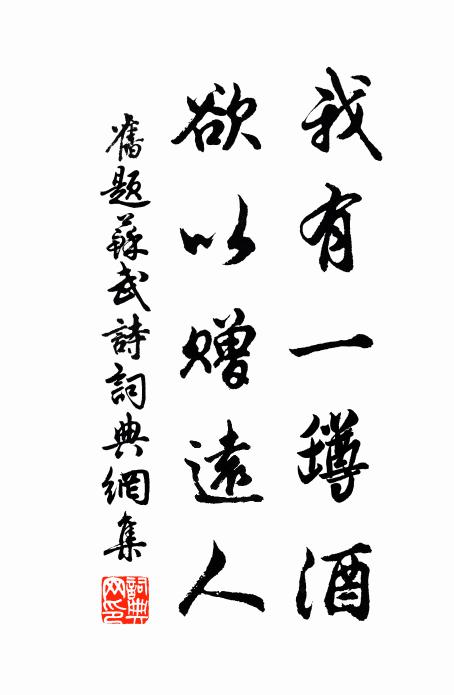 我有一罇酒
欲以贈遠人
舊題蘇武詩詞典網集
詞典网印